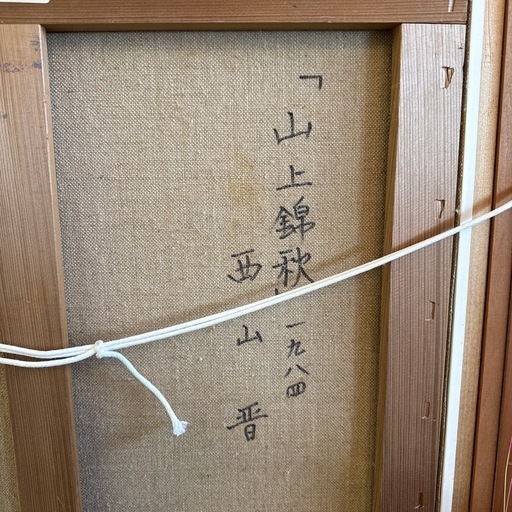 「山上錦秋」一九八四
西山晋